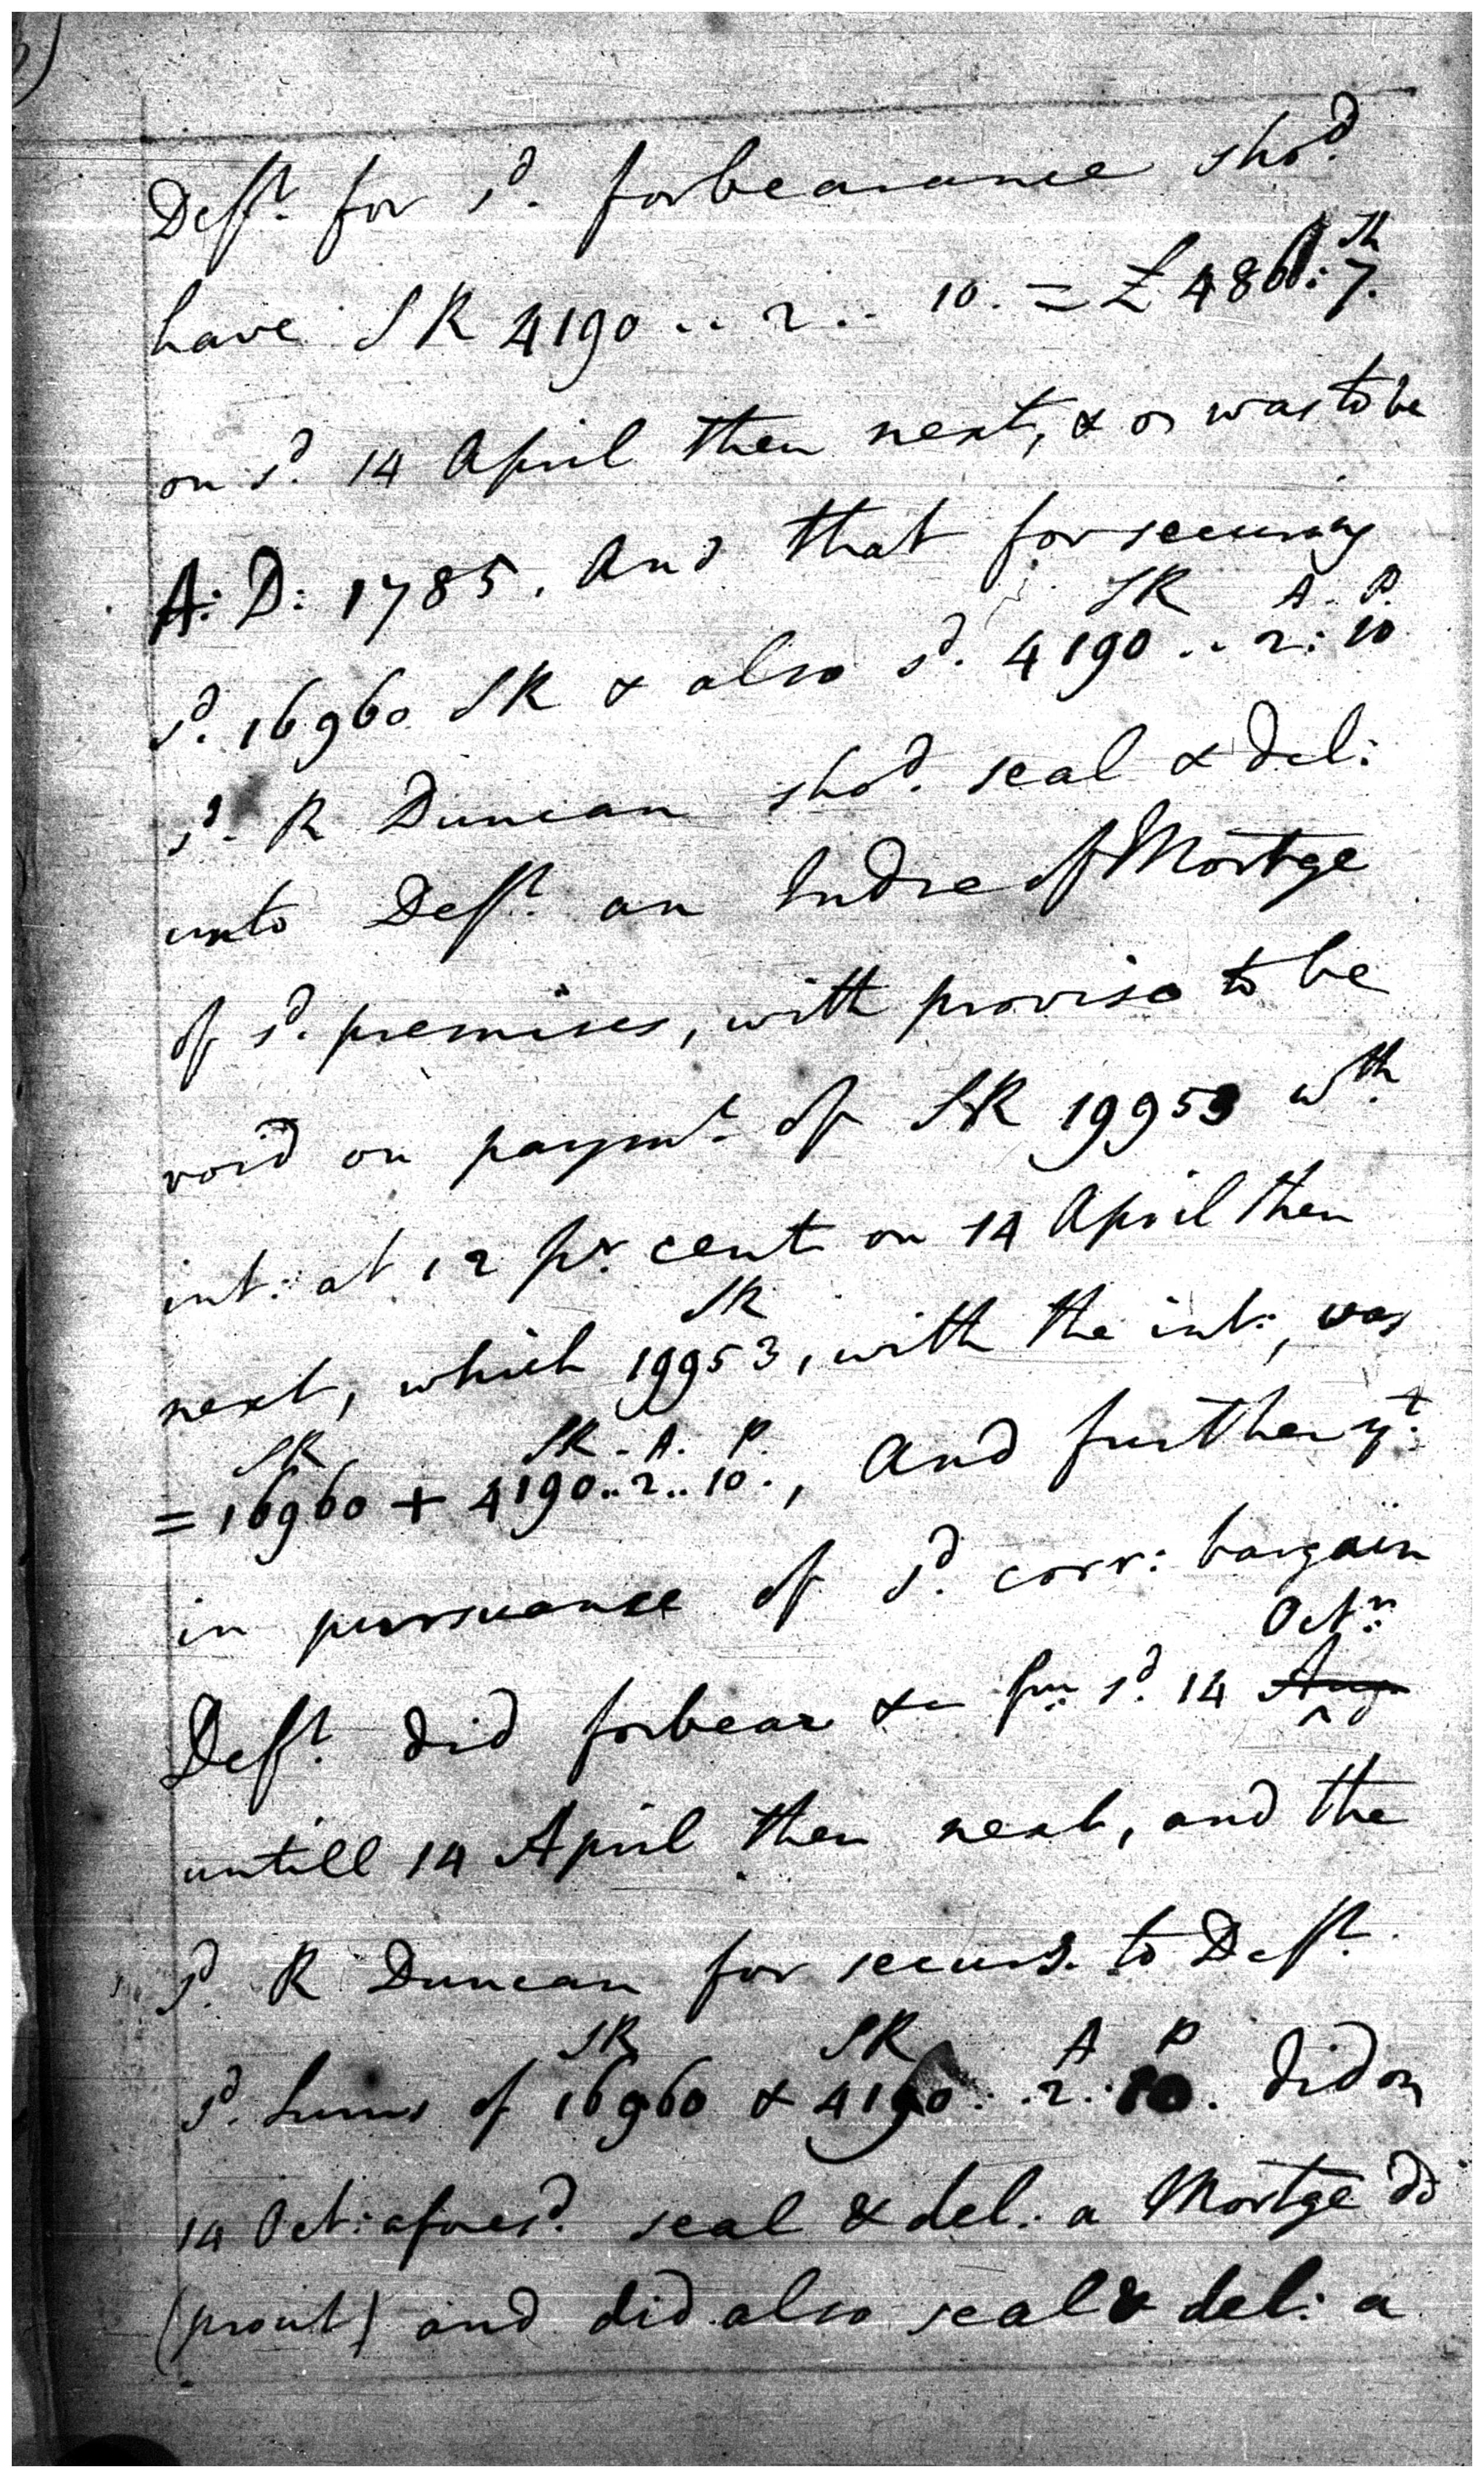 Defft. for sd. forbearance shod.
have SR 4190 .. 2 .. 10. = £ 486: 7. Sh
on sd. 14 April then next, & or was to be
A: D: 1785. And that for securing
SR A. P.
sd. 16960 SR & also sd. 4190 .. 2: 10
sd. R Duncan shod. seal & del:
unto Defft. an Indre of Mortge
of sd. premises, with proviso to be
void on paymt. of SR 19953 wth.
int: at 12 pr. cent on 14 April then
SR
next, which 19953, with the int:, was
SR SR - A. P.
= 16960 + 4190..2..10., And further yt:
in pursuance of sd. corr: bargain
Octr:
Defft. did forbear &c fm sd. 14 Aug
untill 14 April then next, and the
sd. R Duncan for secur to Defft.
SR SR A P
sd. Sums of 16960 & 4190: .2. 10. did on
14 Oct: aforesd. seal & del: a Mortge
(prout) and did also seal & del: a